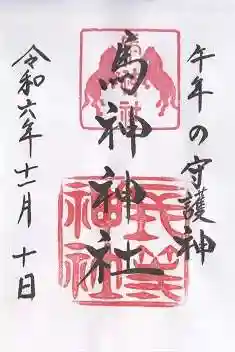 午年の守護神
馬神神社
令和六年十一月十日